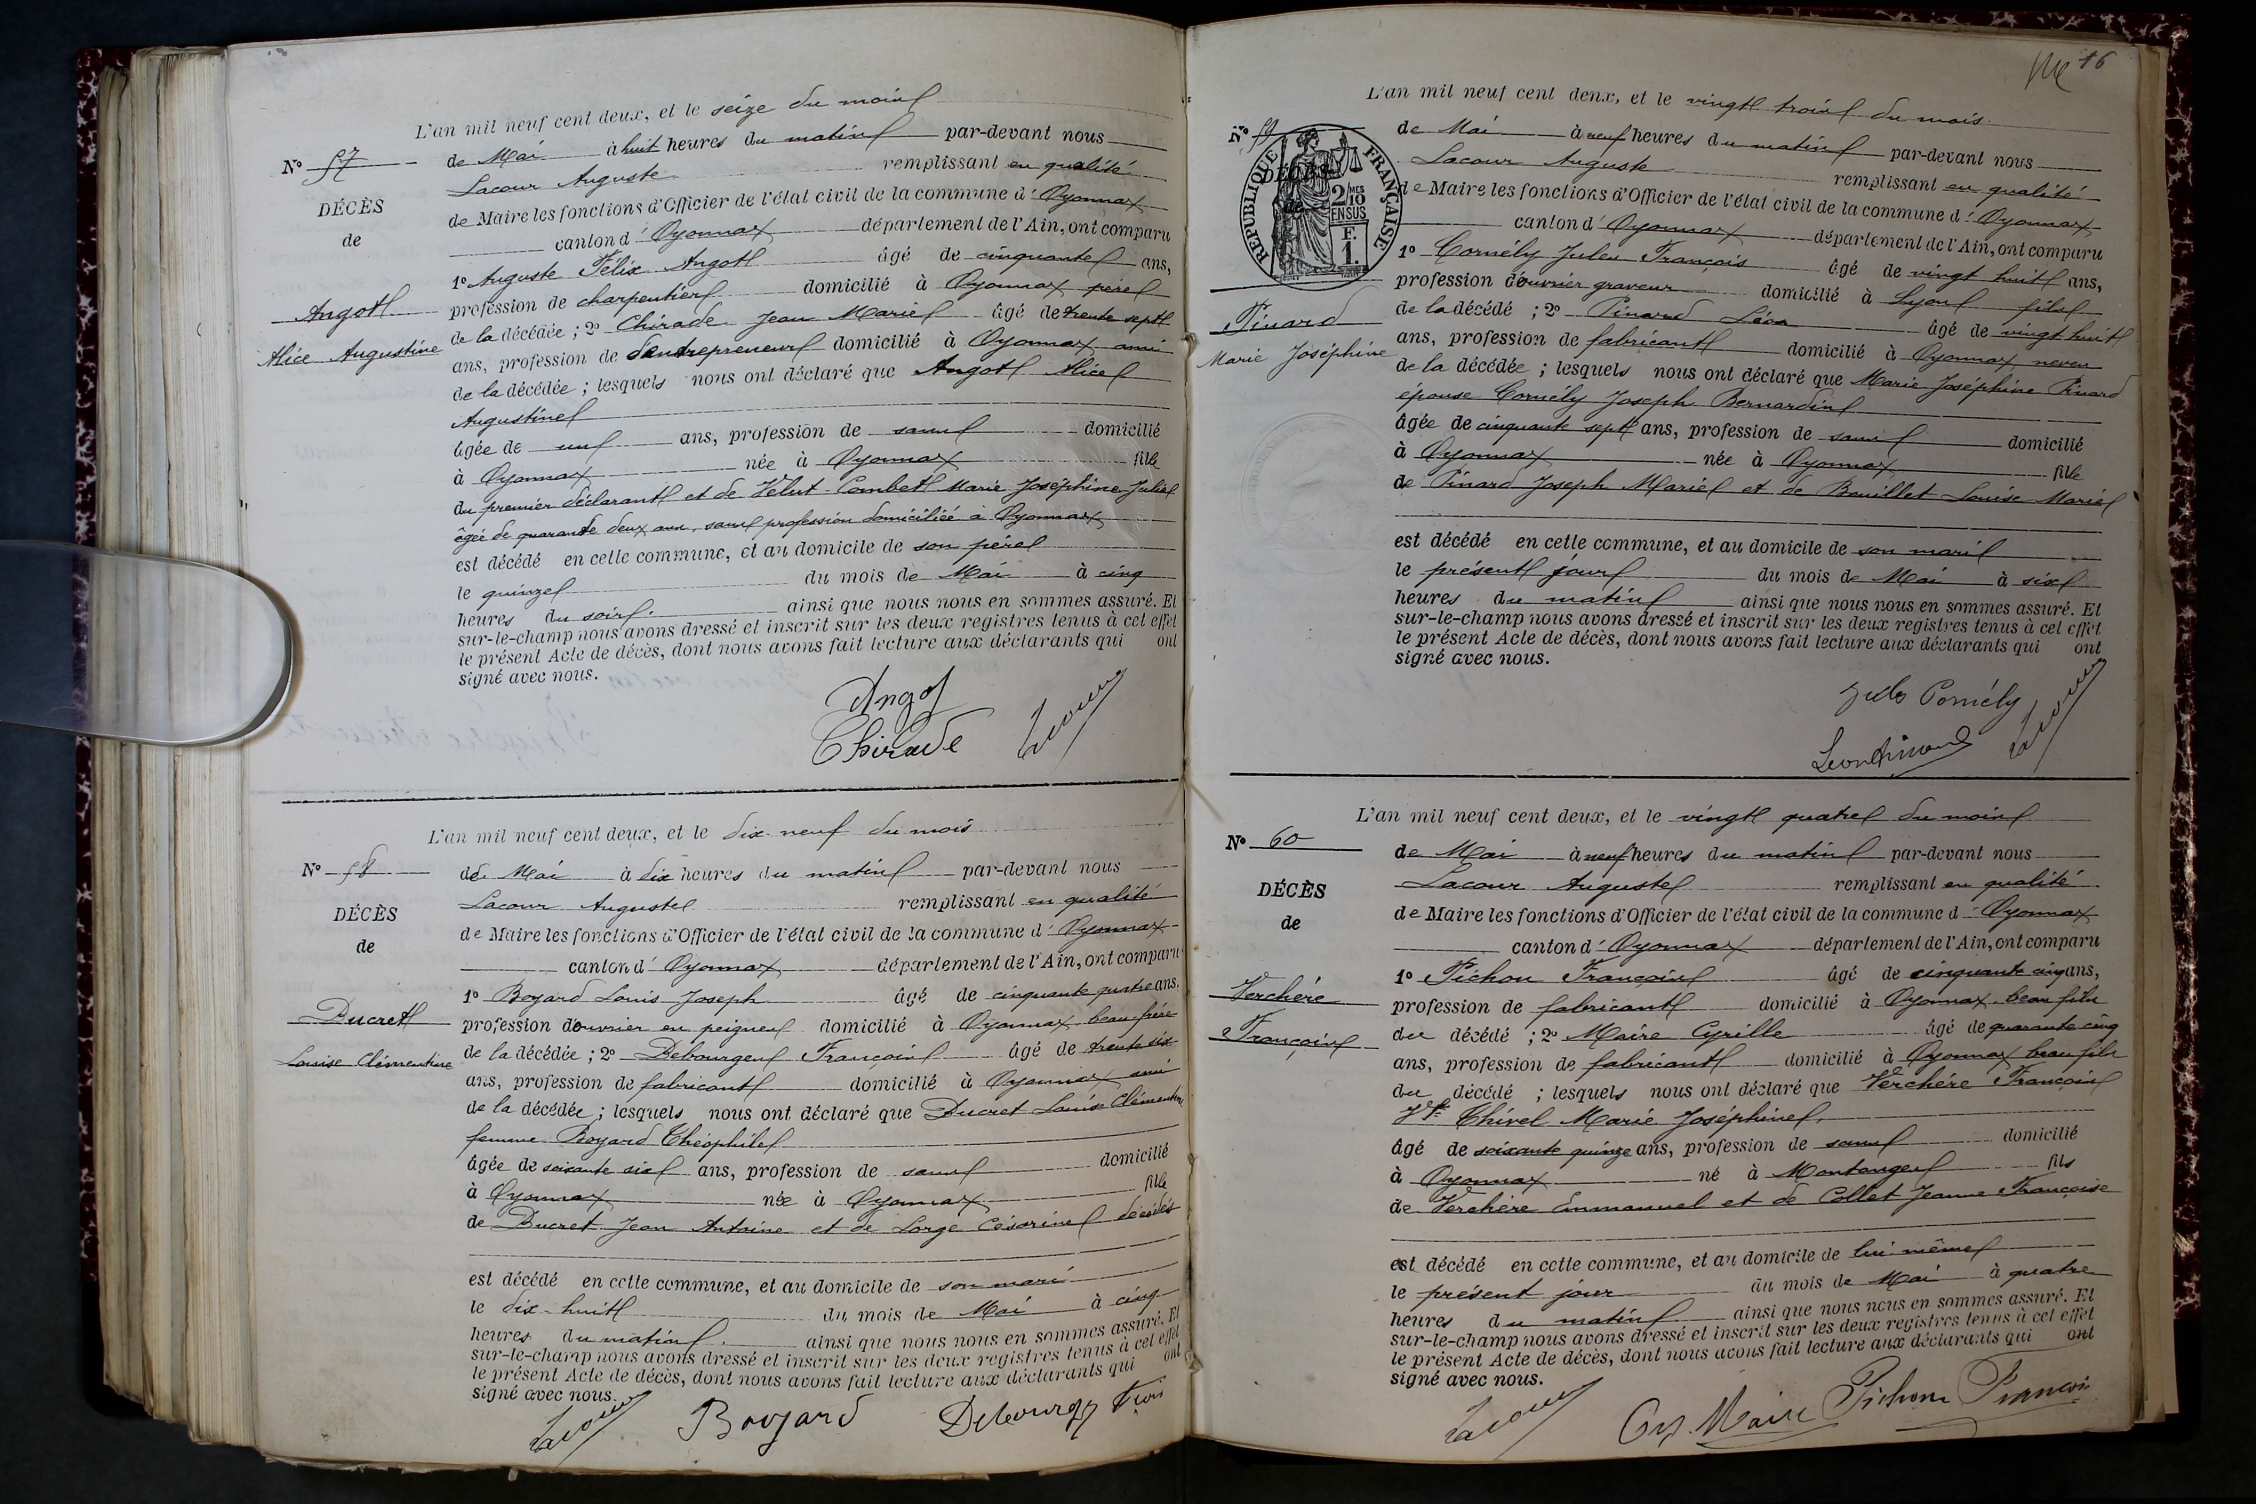 L'an mil neuf cent deux, et le seize du mois
N° 57
de Mai à huit heures du matin par-devant nous
Lacour Auguste remplissant en qualité
DÉCÈS
de Maire les fonctions d'Officier de l'état civil de la commune d'Oyonnax
de
canton d'Oyonnax département de l'Ain, ont comparu
1° Auguste Félix Angot âgé de cinquante ans,
Angot
profession de charpentier domicilié à Oyonnax père
de la décédée ; 2° Chirade Jean Marie âgé de trente sept
Alice Augustine
ans, profession de d'entrepreneur domicilié à Oyonnax ami
de la décédée ; lesquels nous ont déclaré que Angot Alice
Augustine
âgée de un ans, profession de sans domicilié
à Oyonnax née à Oyonnax fille
du premier déclarant et de Velut-Combet Marie Joséphine Julie
âgée de quarante deux ans, sans profession domiciliée à Oyonnax
est décédé en cette commune, et au domicile de son père
le quinze du mois de Mai à cinq
heures du soir. ainsi que nous nous en sommes assuré. Et
sur-le-champ nous avons dressé et inscrit sur les deux registres tenus à cet effet
le présent Acte de décès, dont nous avons fait lecture aux déclarants qui ont
signé avec nous.
Angot
Chirade
Lacour
L'an mil neuf cent deux, et le dix-neuf du mois
N° 58
de Mai à dix heures du matin par-devant nous
Lacour Auguste remplissant en qualité
DÉCÈS
de Maire les fonctions d'Officier de l'état civil de la commune d'Oyonnax
de
canton d'Oyonnax département de l'Ain, ont comparu
1° Boyard Louis Joseph âgé de cinquante quatre ans.
Ducret
profession d'ouvrier en peignes domicilié à Oyonnax beau-frère
Louise Clémentine
de la décédée ; 2° Debourge François âgé de trente six
ans, profession de fabricant domicilié à Oyonnax ami
de la décédée ; lesquels nous ont déclaré que Ducret Louise Clémentine
femme Boyard Théophile
âgée de soixante six ans, profession de sans domicilié
à Oyonnax née à Oyonnax fille
de Ducret Jean Antoine et de Lorge Césarine décédés
est décédé en cette commune, et au domicile de son mari
le dix-huit du mois de Mai à cinq
heures du matin. ainsi que nous nous en sommes assuré. Et
sur-le-champ nous avons dressé et inscrit sur les deux registres tenus à cet effet
le présent Acte de décès, dont nous avons fait lecture aux déclarants qui ont
signé avec nous.
Lacour Boyard Debourge Fçois
16
L'an mil neuf cent deux, et le vingt trois du mois
N° 59
de Mai à neuf heures du matin par-devant nous
Lacour Auguste remplissant en qualité
DÉCÈS
RÉPUBLIQUE FRANÇAISE
2/10 MES EN SUS
F. 1.
de Maire les fonctions d'Officier de l'état civil de la commune d'Oyonnax
de
canton d'Oyonnax département de l'Ain, ont comparu
1° Cornély Jules François âgé de vingt huit ans,
profession d'ouvrier graveur domicilié à Lyon fils
Pinard
de la décédé ; 2° Pinard Léon âgé de vingt huit
Marie Joséphine
ans, profession de fabricant domicilié à Oyonnax neveu
de la décédée ; lesquels nous ont déclaré que Marie Joséphine Pinard
épouse Cornély Joseph Bernardin
âgée de cinquante sept ans, profession de sans domicilié
à Oyonnax née à Oyonnax fille
de Pinard Joseph Marie et de Bouillet Louise Marie
est décédé en cette commune, et au domicile de son mari
le présent jour du mois de Mai à six
heures du matin ainsi que nous nous en sommes assuré. Et
sur-le-champ nous avons dressé et inscrit sur les deux registres tenus à cet effet
le présent Acte de décès, dont nous avons fait lecture aux déclarants qui ont
signé avec nous.
Jules Cornély
Léon Pinard Lacour
L'an mil neuf cent deux, et le vingt quatre du mois
N° 60
de Mai à neuf heures du matin par-devant nous
Lacour Auguste remplissant en qualité
DÉCÈS
de Maire les fonctions d'Officier de l'état civil de la commune d'Oyonnax
de
canton d'Oyonnax département de l'Ain, ont comparu
1° Pichon François âgé de cinquante cinq ans,
Verchère
profession de fabricant domicilié à Oyonnax beau fils
François
du décédé ; 2° Maire Cyrille âgé de quarante cinq
ans, profession de fabricant domicilié à Oyonnax beau fils
du décédé ; lesquels nous ont déclaré que Verchère François
Vf Chivel Marie Joséphine,
âgé de soixante quinze ans, profession de sans domicilié
à Oyonnax né à Montanges fils
de Verchère Emmanuel et de Collet Jeanne Françoise
est décédé en cette commune, et au domicile de lui-même
le présent jour du mois de Mai à quatre
heures du matin ainsi que nous nous en sommes assuré. Et
sur-le-champ nous avons dressé et inscrit sur les deux registres tenus à cet effet
le présent Acte de décès, dont nous avons fait lecture aux déclarants qui ont
signé avec nous.
Lacour Cy. Maire Pichon François